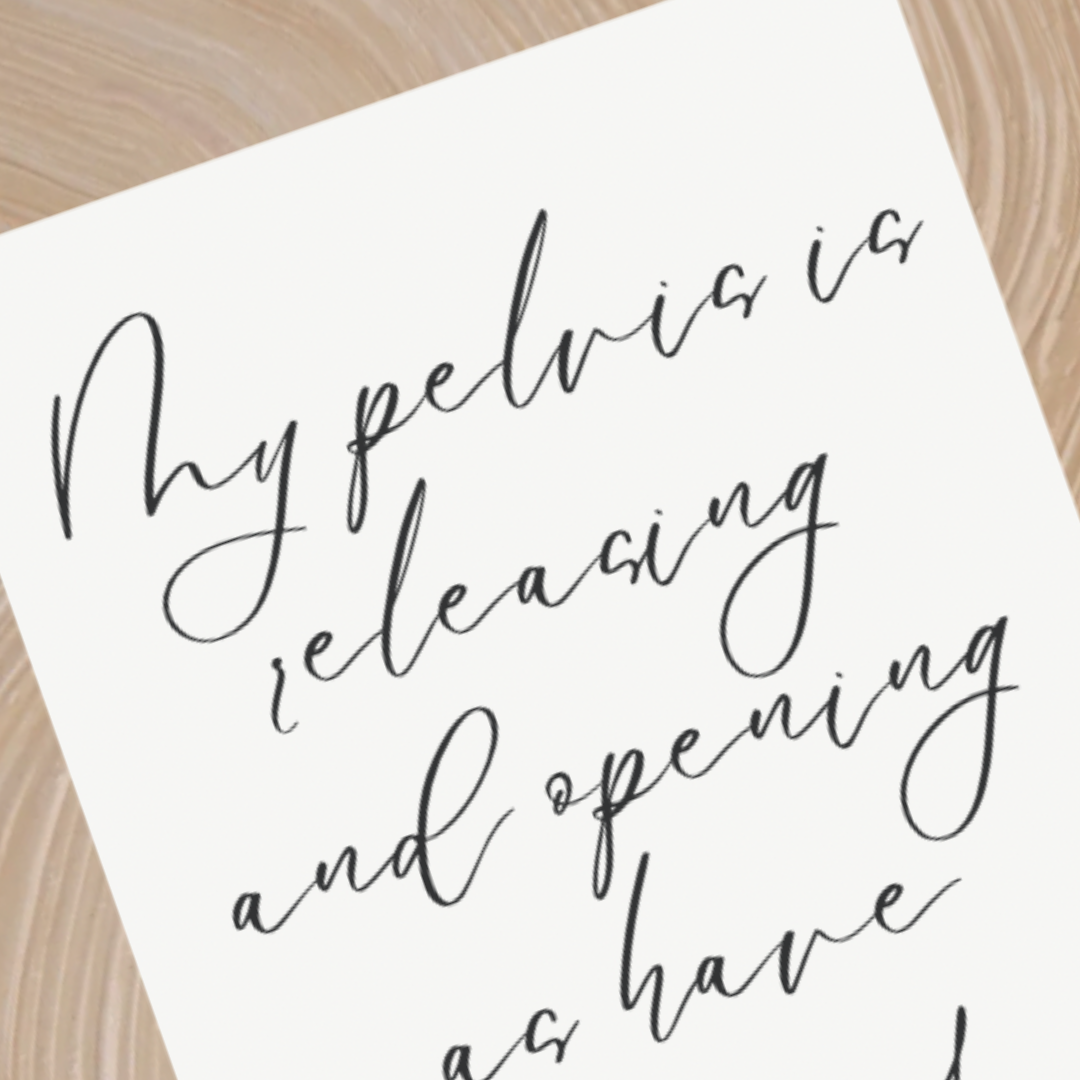 My pelvis is
releasing
and opening
as have